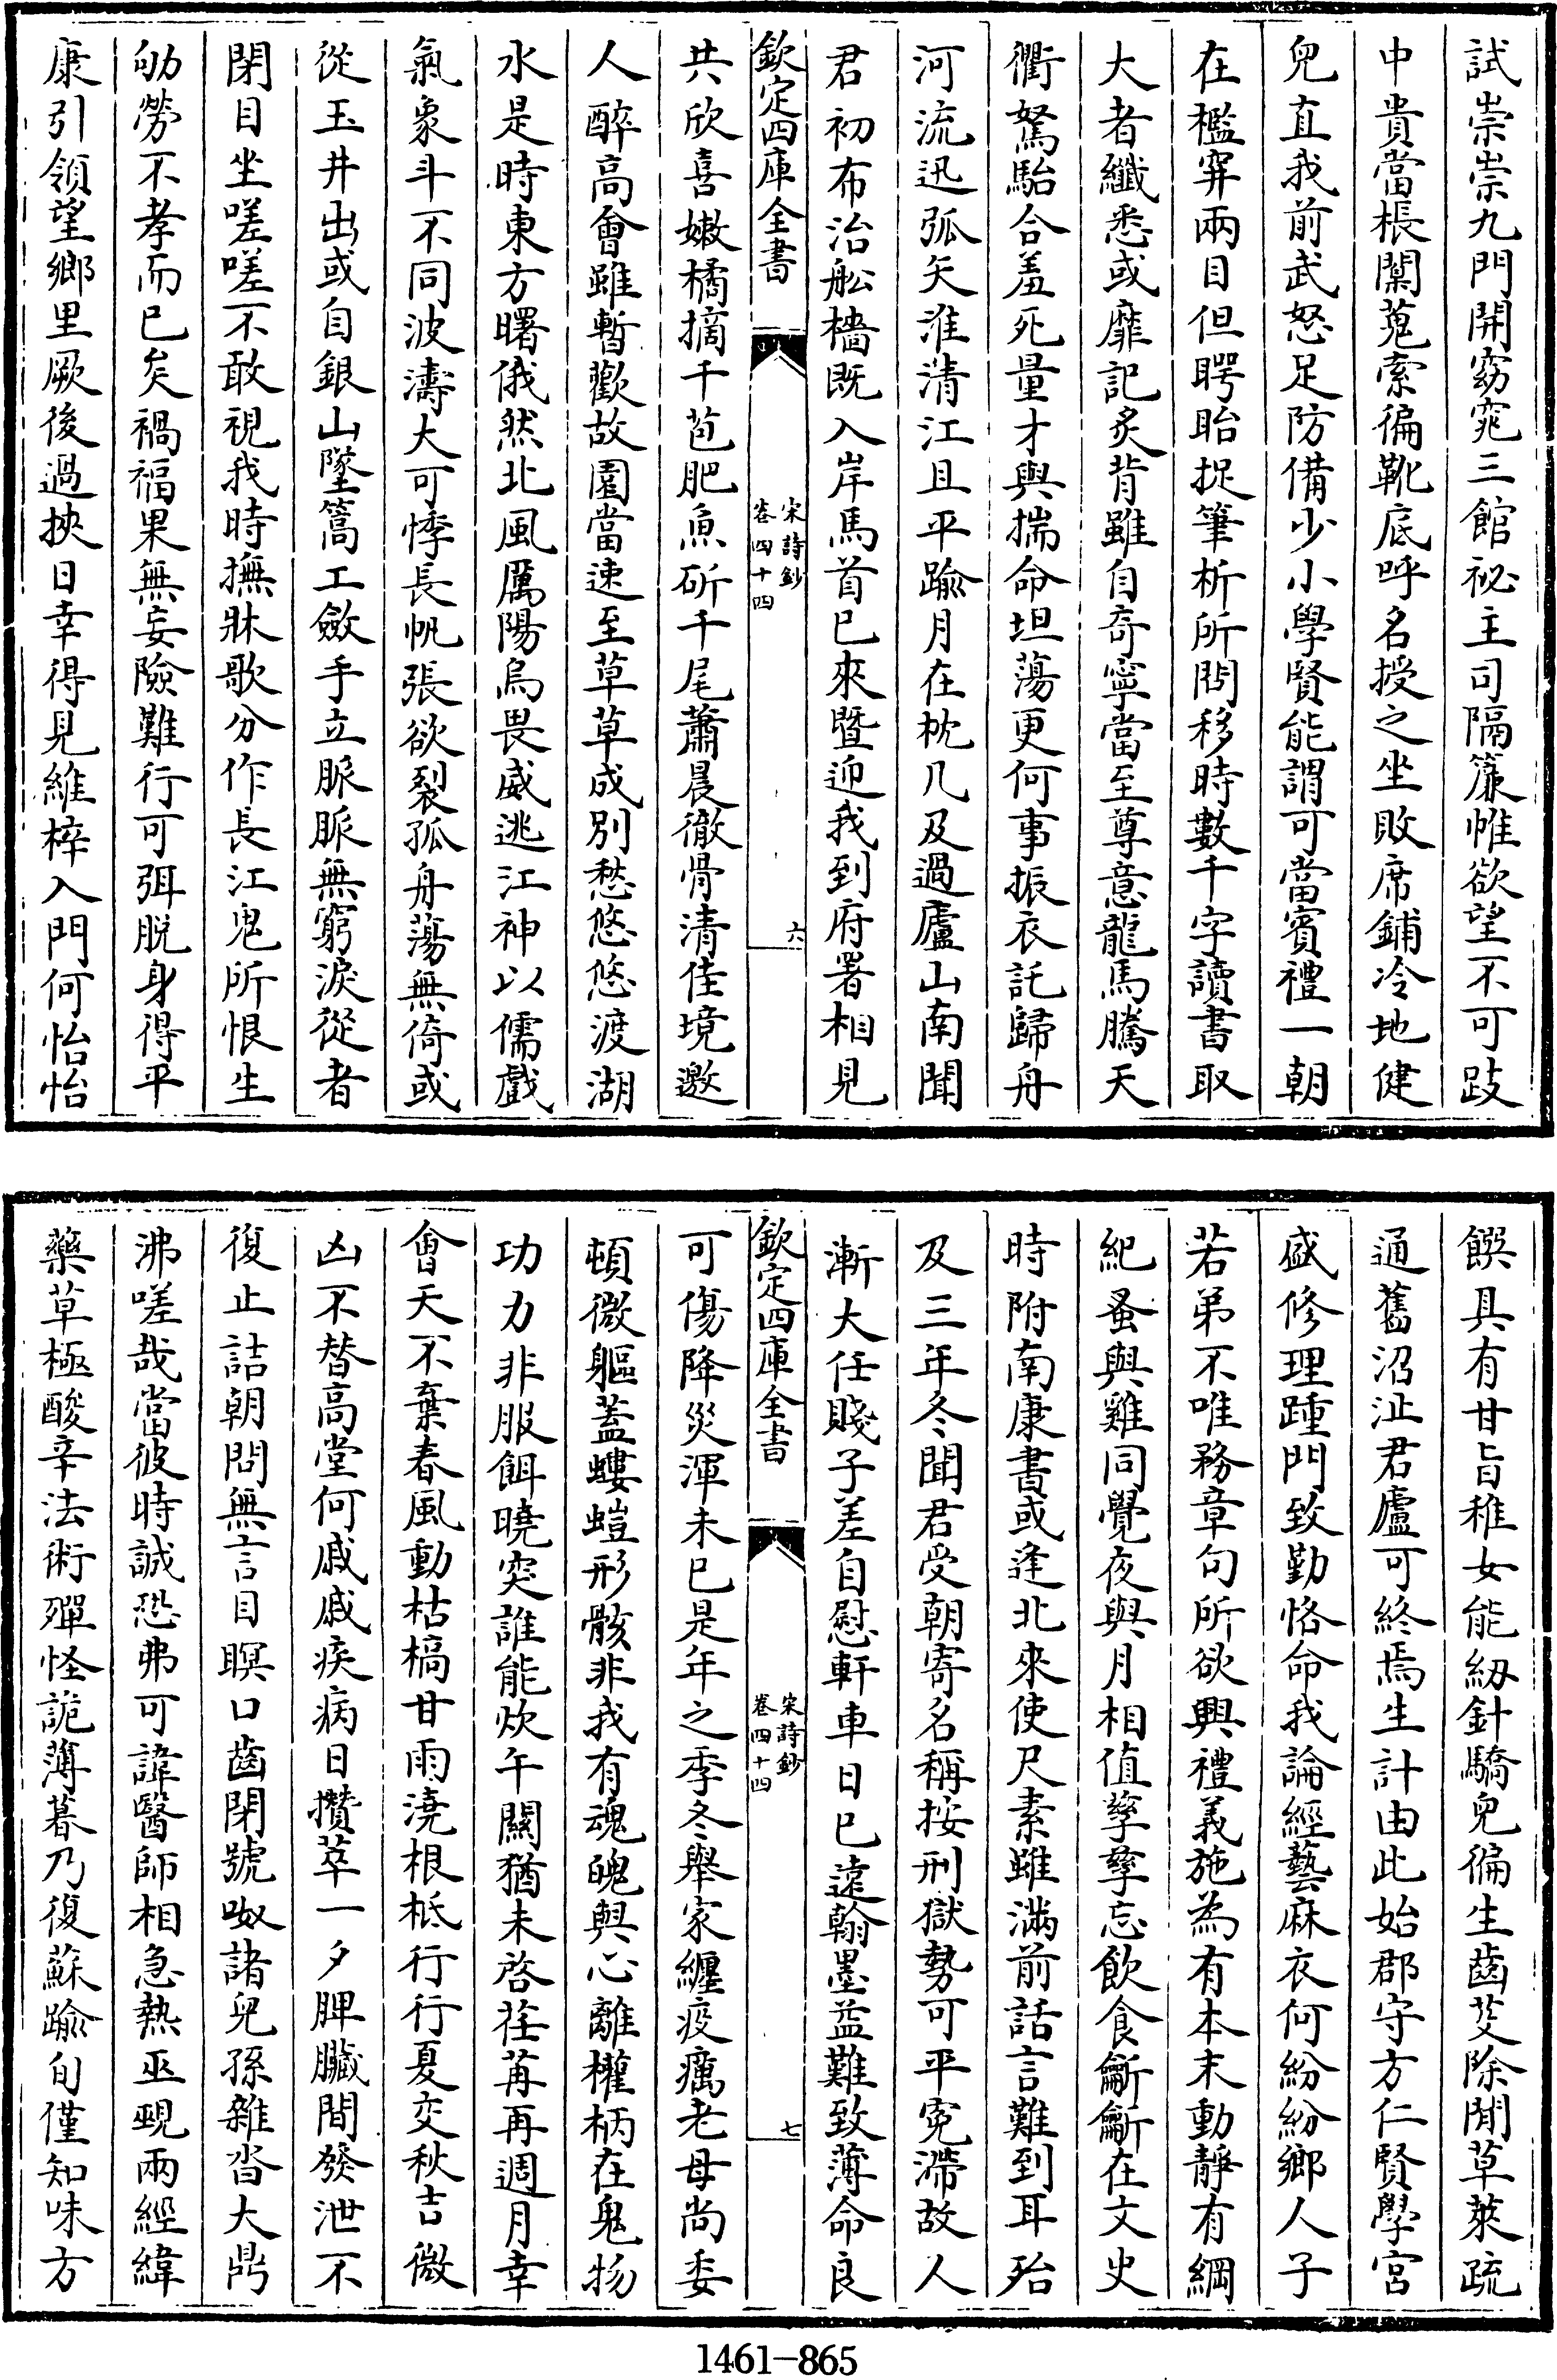 試崇崇九門開窈窕三館祕主司隔簾帷欲望不可跂
中貴當棖闑蒐索徧靴底呼名授之坐敗席鋪冷地健
兒直我前武怒足防備少小學賢能謂可當賓禮一朝
在檻穽兩目但愕眙捉筆析所問移時數千字讀書取
大者纖悉或靡記炙背雖自奇寧當至尊意龍馬騰天
衢駑駘合羞死量才與揣命坦蕩更何事振衣託歸舟
河流迅弧矢淮清江且平踰月在枕几及過廬山南聞
君初布治舩檣既入岸馬首已來暨迎我到府署相見
欽定四庫全書
宋詩鈔
卷四十四
六
共欣喜嫩橘摘千苞肥魚斫千尾蕭晨徹骨清佳境邀
人醉高會雖暫歡故園當速至草草成別愁悠悠渡湖
水是時東方曙俄然北風厲陽烏畏威逃江神以儒戲
氣象斗不同波濤大可悸長帆張欲裂孤舟蕩無倚或
從玉井出或自銀山墜篙工斂手立脈脈無窮淚從者
閉目坐嗟嗟不敢視我時撫牀歌分作長江鬼所恨生
劬勞不孝而已矣禍福果無妄險難行可弭脫身得平
康引領望鄉里厥後過挾日幸得見維梓入門何怡怡
饌具有甘旨稚女能紉針驕兒徧生齒芟除閒草萊疏
通舊沼沚君廬可終焉生計由此始郡守方仁賢學宮
盛修理踵門致勤恪命我論經藝麻衣何紛紛鄉人子
若弟不唯務章句所欲興禮義施為有本末動靜有綱
紀蚤與雞同覺夜與月相值孳孳忘飲食齗齗在文史
時附南康書或逢北來使尺素雖滿前話言難到耳殆
及三年冬聞君受朝寄名稱按刑獄勢可平冤滯故人
漸大任賤子差自慰軒車日已遠翰墨益難致薄命良
欽定四庫全書
宋詩鈔
卷四十四
七
可傷降災渾未已是年之季冬舉家纏疫癘老母尚委
頓微軀蓋螻螘形骸非我有魂魄與心離權柄在鬼物
功力非服餌曉突誰能炊午關猶未啓荏苒再週月幸
會天不棄春風動枯槁甘雨澆根柢行行夏交秋吉微
凶不替高堂何戚戚疾病日攢萃一夕脾臟間發泄不
復止詰朝問無言目瞑口齒閉號呶諸兒孫雜沓大鼎
沸嗟哉當彼時誠恐弗可諱醫師相急熱巫覡兩經緯
藥草極酸辛法術殫怪詭薄暮乃復蘇踰旬僅知味方
1461-865